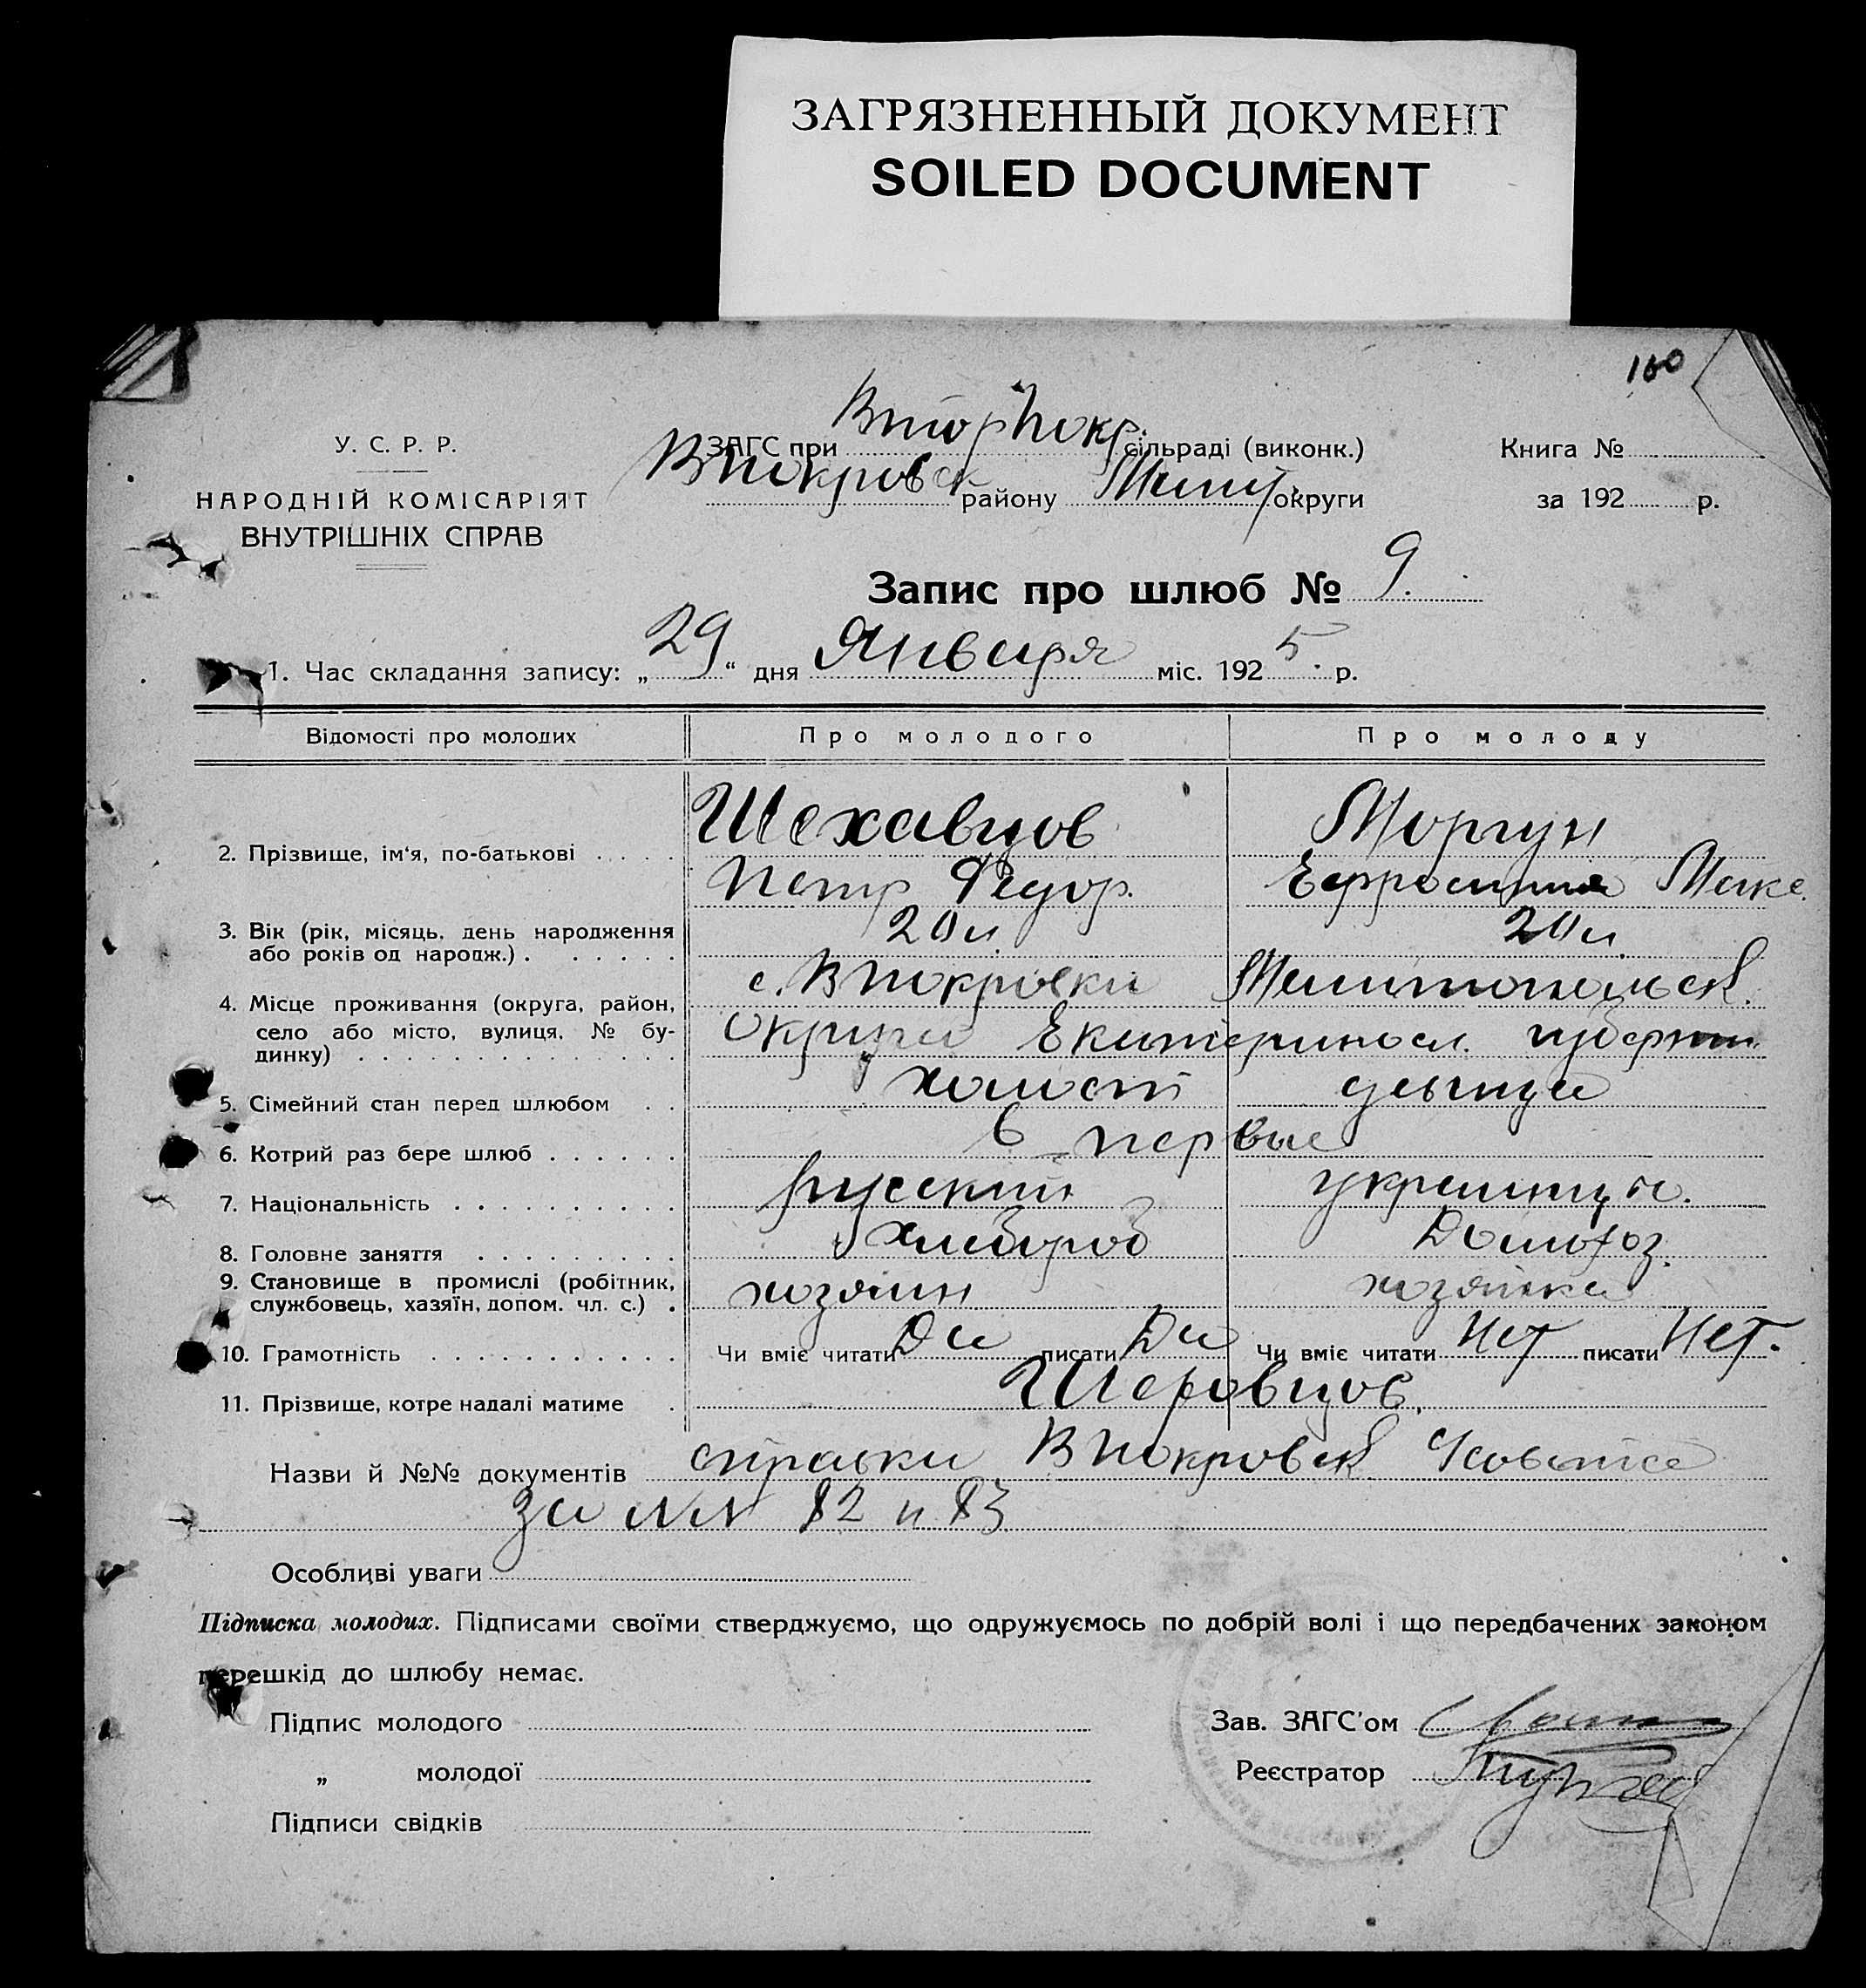 ЗАГРЯЗНЕННЫЙ ДОКУМЕНТ
SOILED DOCUMENT
160
У. С. Р. Р.
НАРОДНІЙ КОМІСАРІЯТ
ВНУТРІШНІХ СПРАВ
ЗАГС при ВторПокр. сільраді (виконк.)
ВПокровск району Мелит. округи
Книга №
за 192 р.
Запис про шлюб № 9.
1. Час складання запису: „29“ дня Января міс. 1925. р.
Відомості про молодих Про молодого Про молоду
2. Прізвище, ім‘я, по-батькові Шехавцов Моргун
Петр Федор. Ефросиния Макс.
3. Вік (рік, місяць, день народження або років од народж.) 20 л. 20 л.
4. Місце проживання (округа, район, село або місто, вулиця, № будинку) с. ВПокровки Мелитопольск.
Округи Екатериносл. губернии
5. Сімейний стан перед шлюбом холост девица
6. Котрий раз бере шлюб в первые
7. Національність русский украинка.
8. Головне заняття Хлебороб Домохоз.
9. Становище в промислі (робітник, службовець, хазяїн, допом. чл. с.) хозяин хозяйка
10. Грамотність Чи вміє читати Да писати Да Чи вміє читати Нет писати Нет.
11. Прізвище, котре надалі матиме
Назви й №№ документів справки ВПокровск
за №№ 82 и 83
Особливі уваги
Підписка молодих. Підписами своїми стверджуємо, що одружуємось по добрій волі і що передбачених законом
перешкід до шлюбу немає.
Підпис молодого
„ молодої
Підписи свідків
Зав. ЗАГС'ом
Реєстратор